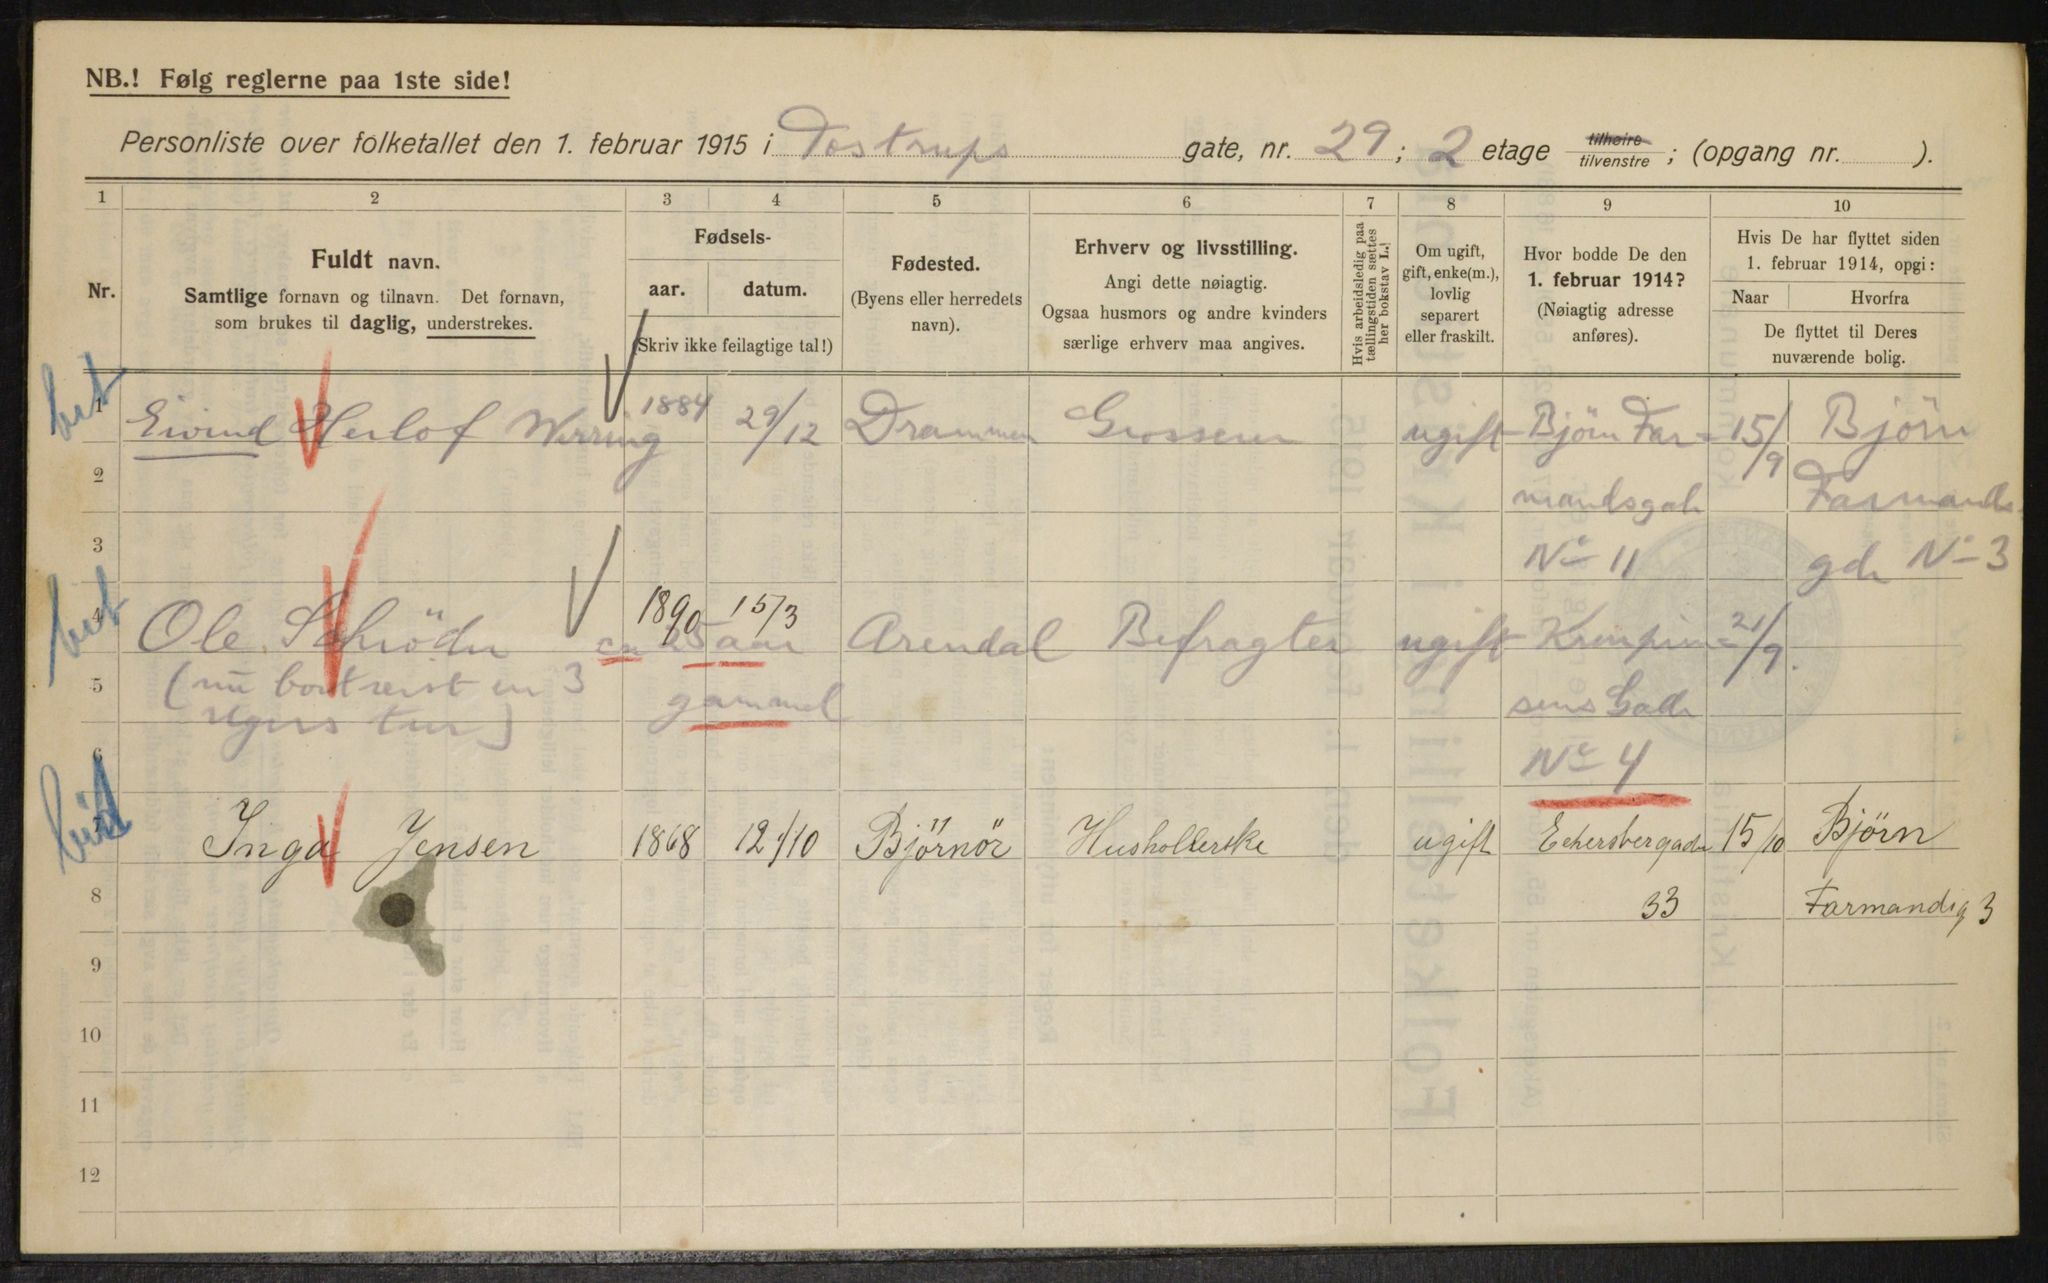 NB.! Følg reglerne paa 1ste side!
Personliste over folketallet den 1. februar 1915 i Tostrups gate, nr. 29; 2 etage tilhøire tilvenstre; (opgang nr. ).
1 2 3 4 5 6 7 8 9 10
Nr.
Fuldt navn.
Samtlige fornavn og tilnavn. Det fornavn,
som brukes til daglig, understrekes.
Fødsels-
aar. datum.
(Skriv ikke feilagtige tal!)
Fødested.
(Byens eller herredets
navn).
Erhverv og livsstilling.
Angi dette nøiagtig.
Ogsaa husmors og andre kvinders
særlige erhverv maa angives.
Hvis arbeidsledig paa
tællingstiden sættes
her bokstav L.!
Om ugift,
gift, enke(m.),
lovlig
separert
eller fraskilt.
Hvor bodde De den
1. februar 1914?
(Nøiagtig adresse
anføres).
Hvis De har flyttet siden
1. februar 1914, opgi:
Naar Hvorfra
De flyttet til Deres
nuværende bolig.
1 Eivind Herlof Werring 1884 29/12 Drammen Grosserer ugift Bjørn Far= 15/9 Björn
2 mandsgade Farmands
3 No 11 gde No 3
4 Ole Schröder 1890 15/3 ca 25 aar Arendal Befragter ugift 21/9.
5 (nu bortreist en 3 gammel
ugers tur) sens Gade
6 No 4
7 Inga Jensen 1868 12/10 Björnör Husholderske ugift Eckersbergade 15/10 Björn
8 33 Farmandsg 3
9
10
11
12